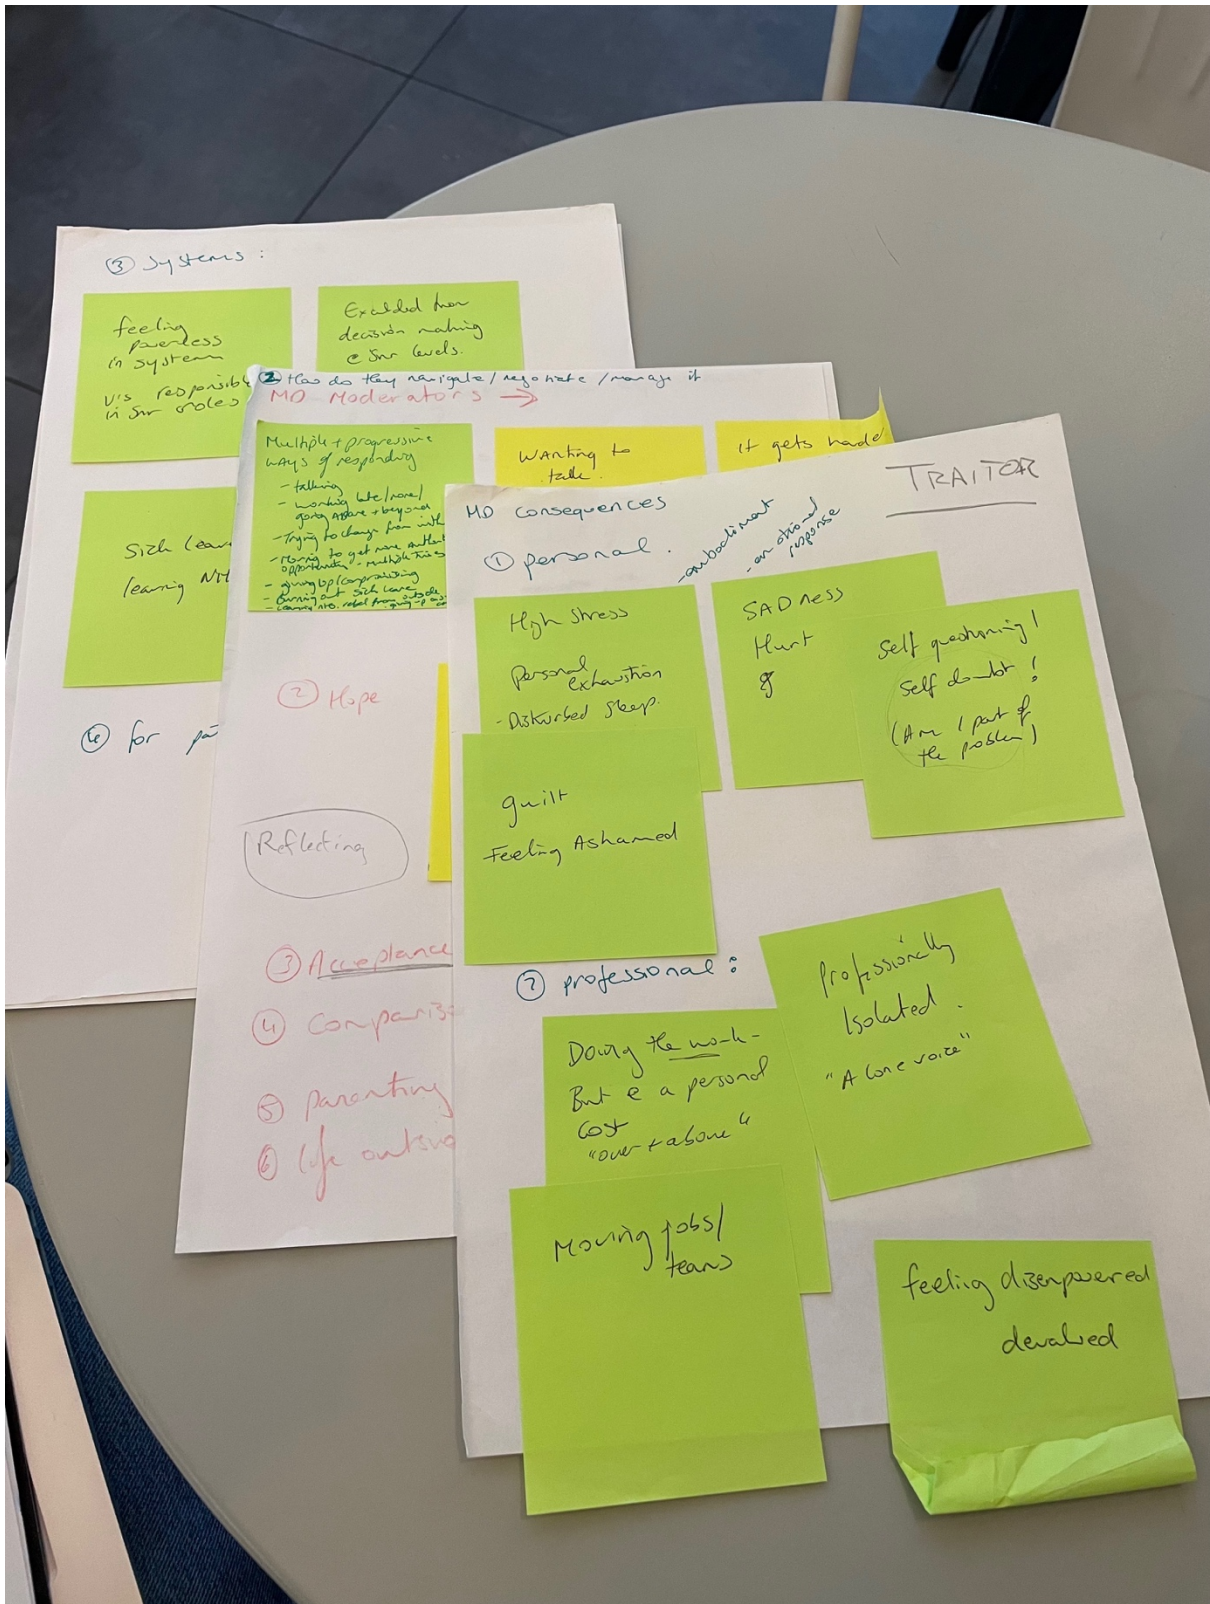 ③ Systems :
feeling
powerless
in system
v's responsible
in Snr roles
Excluded from
decision making
@ Snr levels.
Sick leav
leaving NH
④ for pa
② How do they navigate/negotiate/manage it
MD Moderators →
Multiple + progressive
ways of responding
- talking
- working late/more/
going above + beyond
- Trying to change from with
- Moving to get more
opportunities - multiple times
- giving up/compromising
- Burning out sick leave
- Leaving NHS. rebel from outside
Wanting to
talk.
it gets harde
② Hope
Reflecting
③ Acceptance
④ Comparis
⑤ parenting
⑥ life outsid
TRAITOR
MD consequences
① personal.
- embodiment
- emotional
response
High Stress
Personal
exhaustion
- Disturbed Sleep.
SADness
Hurt
Self questioning!
Self doubt!
(Am I part of
the problem)
guilt
Feeling Ashamed
② professional:
Professionally
Isolated.
"A lone voice"
Doing the work -
But @ a personal
cost
"over + above"
Moving jobs/
teams
feeling disempowered
devalued